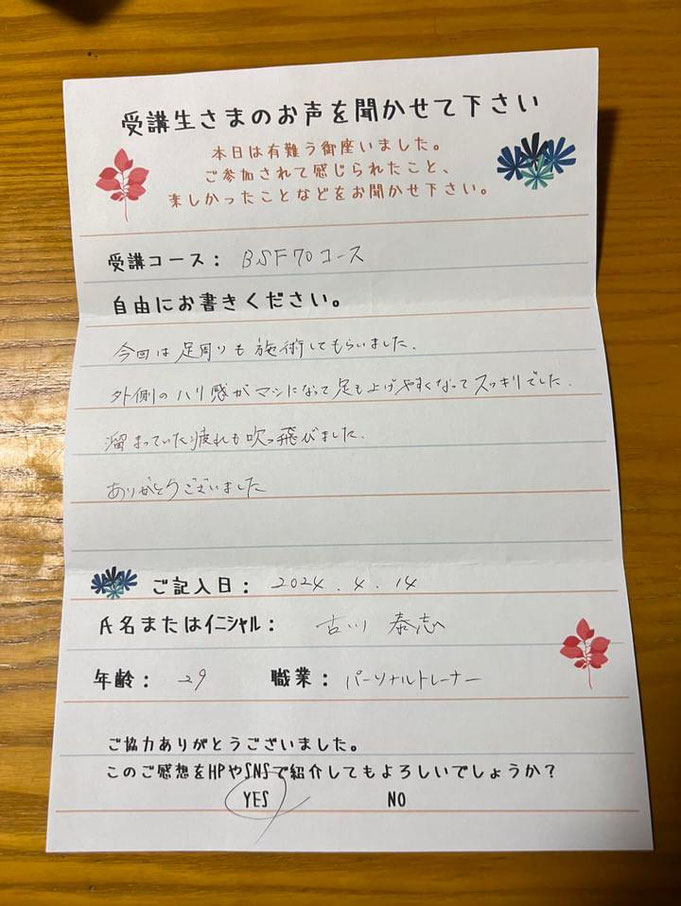 受講生さまのお声を聞かせて下さい
本日は有難う御座いました。
ご参加されて感じられたこと、
楽しかったことなどをお聞かせ下さい。
受講コース： BSF70コース
自由にお書きください。
今回は足周りも施術してもらいました.
外側のハリ感がマシになって足も上げやすくなってスッキリでした.
溜まっていた疲れも吹っ飛びました.
ありがとうございました
ご記入日： 2024.4.14
氏名またはイニシャル： 古川 泰志
年齢： 29 職業： パーソナルトレーナー
ご協力ありがとうございました。
このご感想をHPやSNSで紹介してもよろしいでしょうか？
YES NO